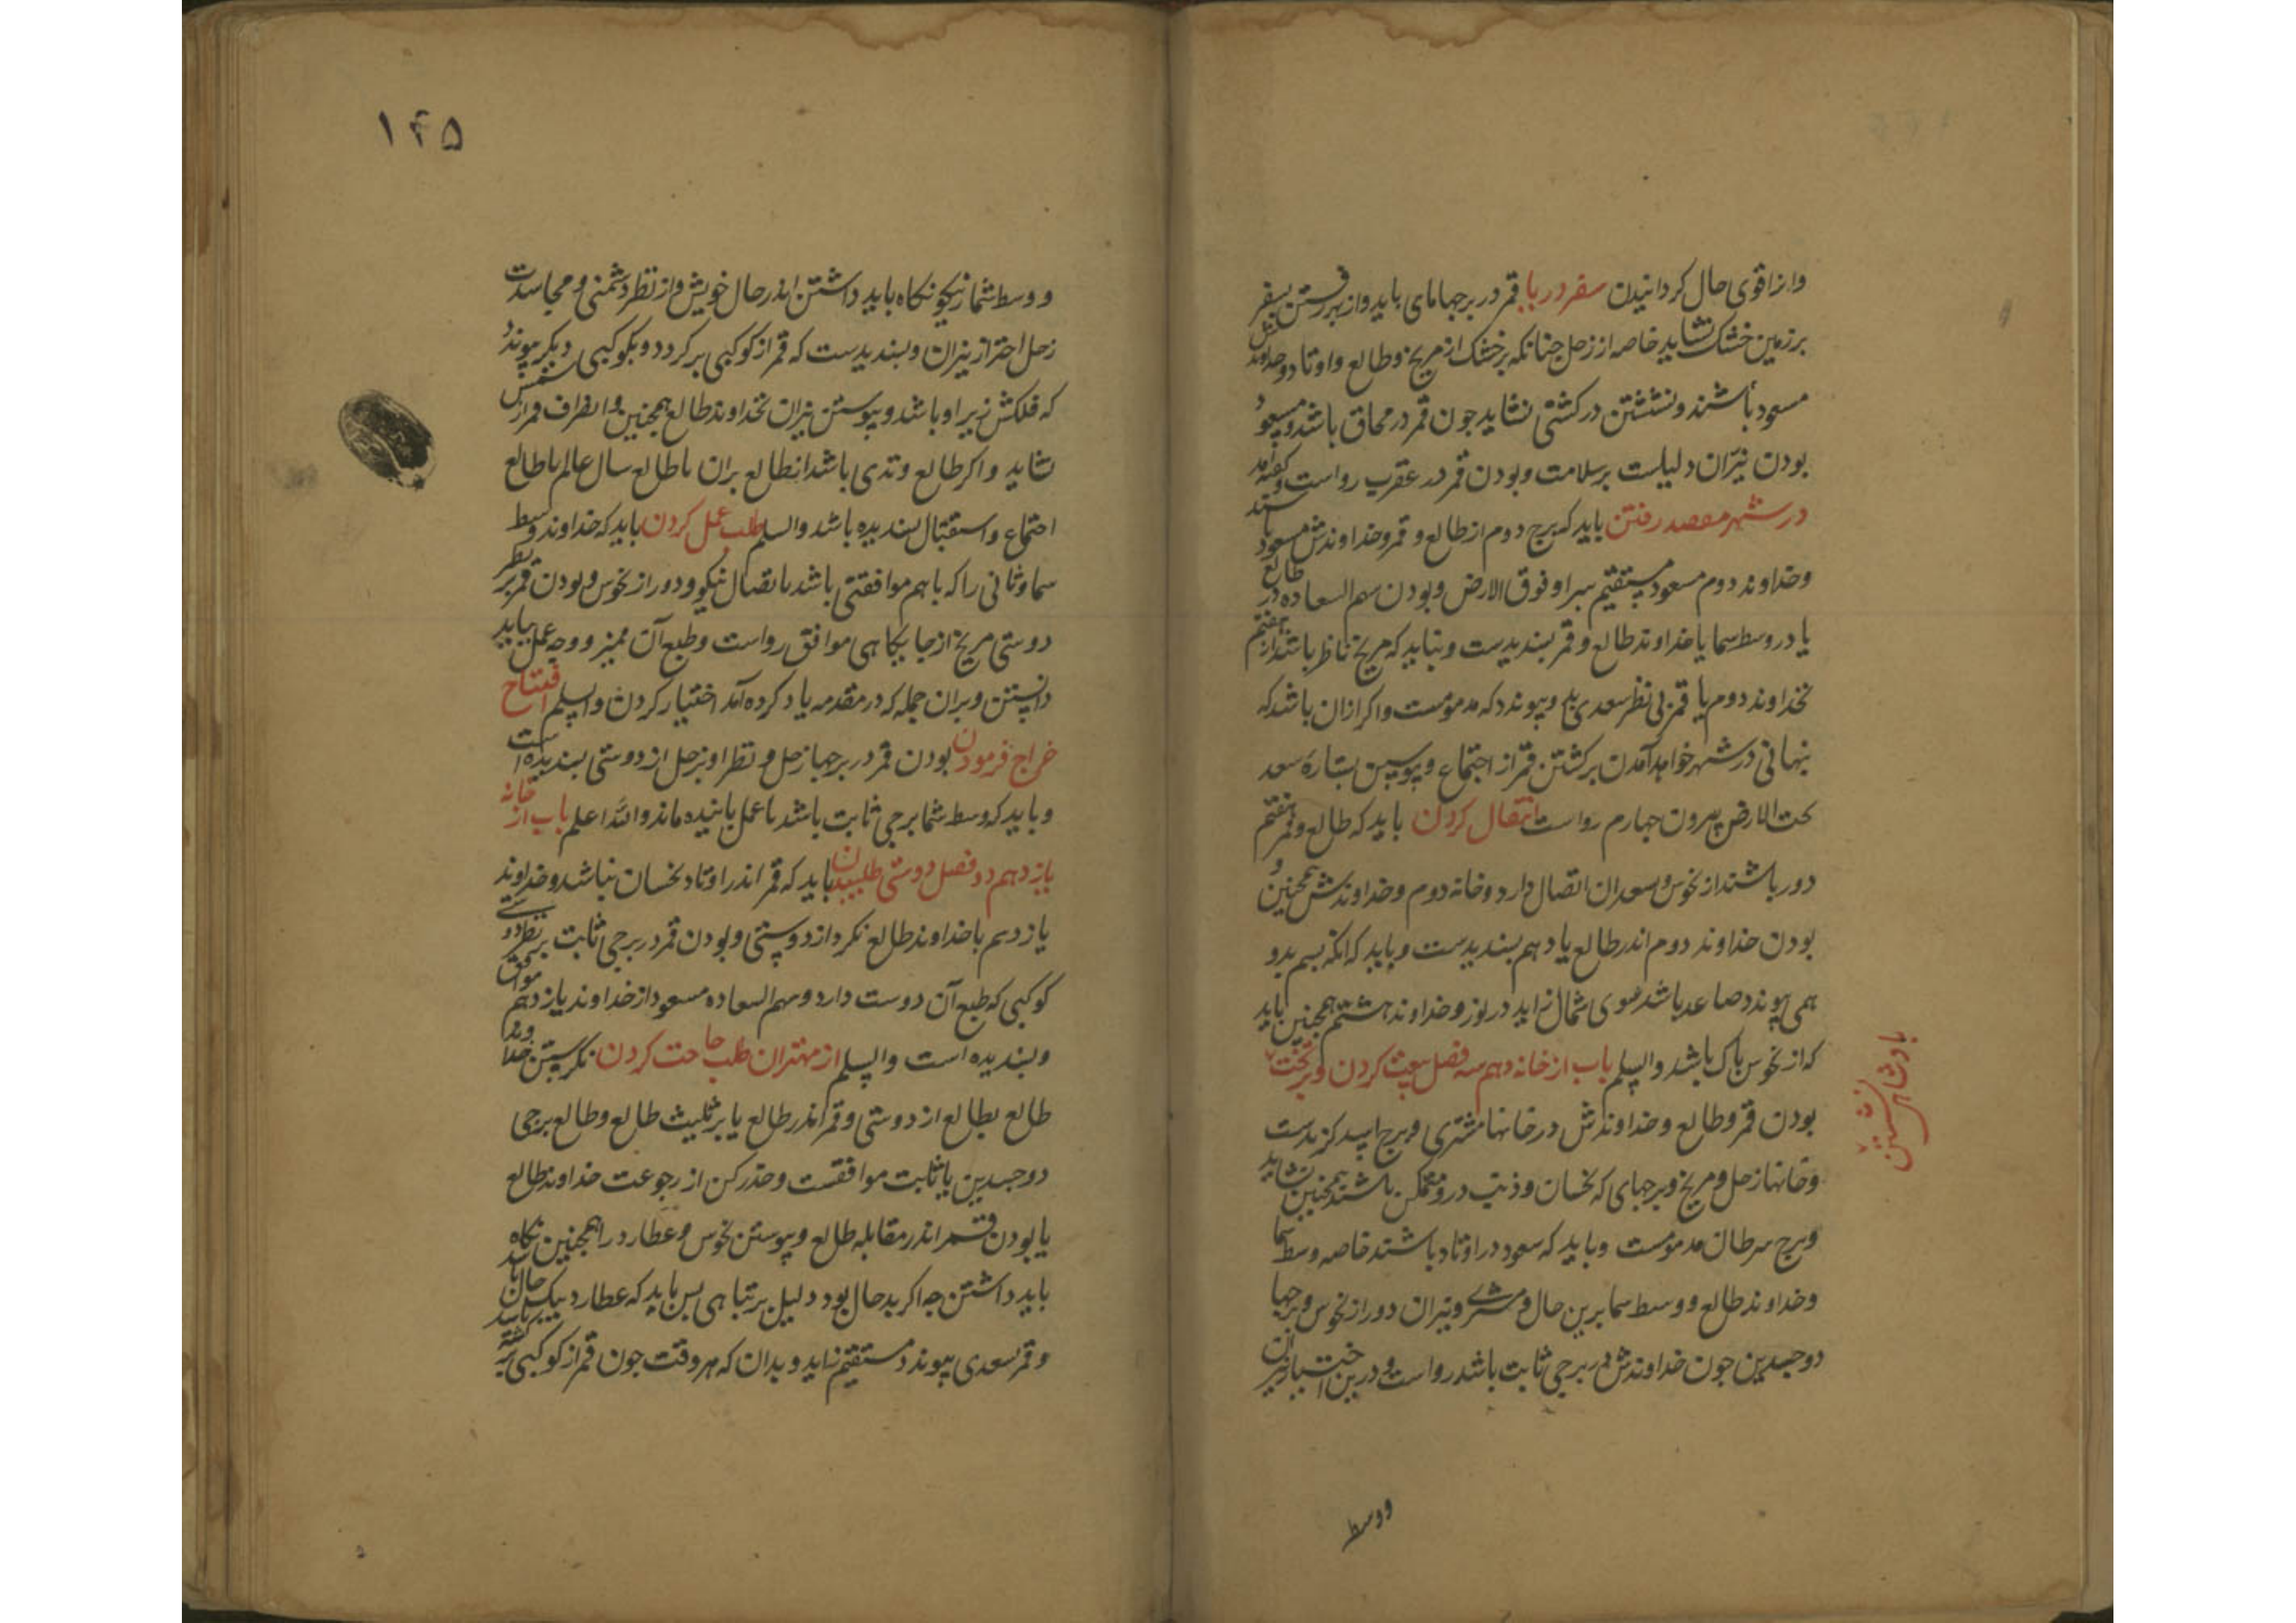 وازا قوی حال کردانیدن سفر دریا قمر در برجهامای باید واز بهر رفتن بسفر
بر زمین خشک نشاید خاصه از زحل چنانکه بر خشک از مریخ وطالع واوتاد وخداوندش
مسعود باشند ونشستن در کشتی نشاید جون قمر در محاق باشد ومسعود
بودن نیّران دلیلست بر سلامت وبودن قمر در عقرب رواست وگفته‌اند
در شهر مقصد رفتن باید که برج دوم از طالع و قمر وخداوندش مسعود باشند
وخداوند دوم مسعود مستقیم سیر او فوق الارض وبودن سهم السعاده در طالع
یا در وسط سما یا خداوند طالع وقمر بسندیدست ونباید که مریخ ناظر باشد از هفتم
بخداوند دوم یا قمر بی نظر سعدی وپیوندد که مذمومست واکر ازان باشد که
پنهانی در شهر خواهد آمدن برکشتن قمر از اجتماع وپیوستن بستارهٔ سعد
تحت الارض بیرون جهارم رواست انتقال کردن باید که طالع وقمر وهفتم
دور باشند از نحوس وسعدان اتصال دارد وخانه دوم وخداوندش همچنین و
بودن خداوند دوم اندر طالع یا دهم بسندیدست وباید که انکه بسم بدو
همی پیوندد صاعد باشد سوی شمال زاید در نور وخداوند هشتم همچنین باید
که از نحوس پاک باشد والسلم باب از خانه دهم سه فصل بیعت کردن وبر تخت
بادشاهی نشستن
بودن قمر وطالع وخداوندش در خانها مشتری وبرج اسد کزیدست
وخانها زحل ومریخ وبرجهای که نحسان وذنب درو متمکن باشند همچنین نشاید
وبرج سرطان مذمومست وباید که سعود در اوتاد باشند خاصه وسط سما
وخداوند طالع ووسط سما برین حال ومشتری ونیران دور از نحوس وبرجها
دوجسدین جون خداوندش در برجی ثابت باشد رواست ودرین اختیار نیران
ووسط
۱۴۵
ووسط شما را نیکو نکاه باید داشتن اندر حال خویش واز نظر دشمنی ومجاسدت
زحل احتراز نیران وبسندیدست که قمر از کوکبی برکردد وبکوکبی دیکر پیوندد
که فلکش زیر او باشد وپیوستن نیران بخداوند طالع همچنین وانصراف قمر از شمس
نشاید واکر طالع وتدی باشد از طالع بران با طالع سال عالم یا طالع
اجتماع واستقبال بسندیده باشد والسلم طلب عمل کردن باید که خداوند وسط
سما وثانی را که با هم موافقتی باشد با اتصال نیکو ودور از نحوس وبودن قمر بر نظر
دوستی مریخ از جایکاهی موافق رواست وطبع آن ممیز ووجه عمل بباید
دانستن وبران جمله که در مقدمه یاد کرده آمد اختیار کردن والسلم افتتاح
خراج فرمودن بودن قمر در برجها زحل ونظر او بزحل از دوستی بسندیده است
وباید که وسط شما برجی ثابت باشد تا عمل پاینده ماند والله اعلم باب از خانه
یازدهم دو فصل دوستی طلبیدن باید که قمر اندر اوتاد نحسان نباشد وخداوند
یازدهم با خداوند طالع نکرد از دوستی وبودن قمر در برجی ثابت بر نظر دوستی
کوکبی که طبع آن دوست دارد وسهم السعاده مسعود از خداوند یازدهم موافق
وبسندیده است والسلم از مهتران طلب حاجت کردن نکریستن خداوند
طالع بطالع از دوستی وقمر اندر طالع یا بر تثلیث طالع وطالع برجی
دوجسدین یا ثابت موافقست وحذر کن از رجوعت خداوند طالع
یا بودن قمر اندر مقابله طالع وپیوستن نحوس وعطارد را همچنین نکاه
باید داشتن جه اکر بد حال بود دلیل بر تباهی بس باید که عطارد نیک حال باشد
وقمر بسعدی پیوندد مستقیم زاید وبدان که هر وقت جون قمر از کوکبی برکشته باشد